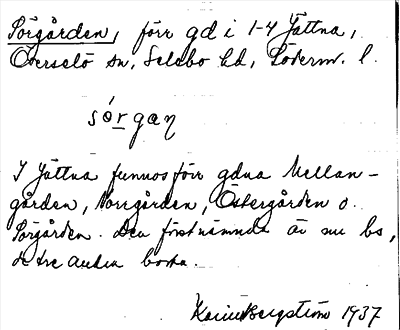 Sörgården, förr gd i 1-4 Jättna,
Överselö sn, Selebo hd, Söderm. l.
sörgaɳ
I Jättna funnos förr gdna Mellan-
gården, Norrgården, Östergården o.
Sörgården. Den förstnämnda är nu bs,
de tre andra borta.
Karin Bergström 1937